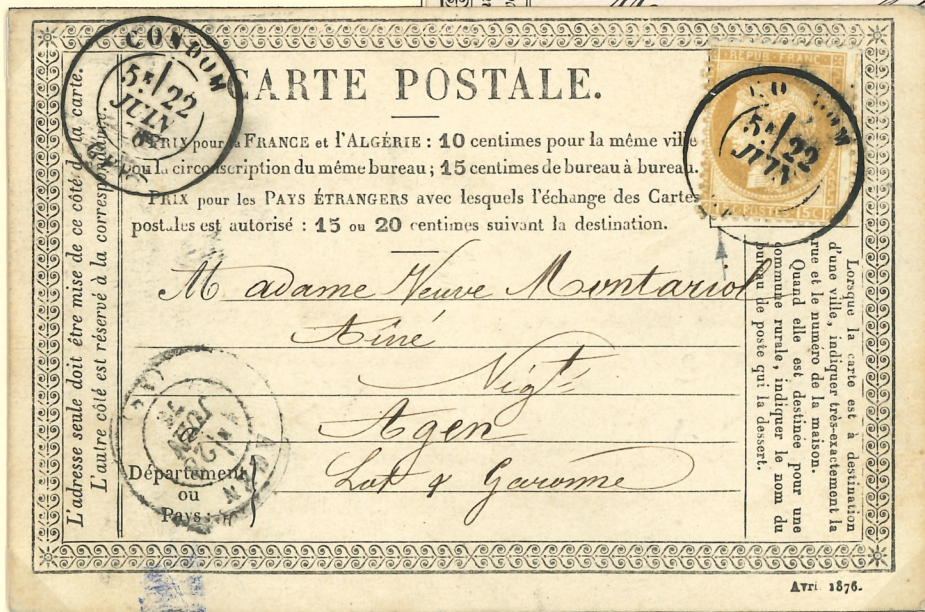 CONDOM
5E 22
JUIN
(GERS)
CARTE POSTALE.
REPUB. FRANC.
POSTES 15 C
CONDOM
5E 22
JUIN
PRIX pour la FRANCE et l'ALGÉRIE : 10 centimes pour la même ville
ou la circonscription du même bureau ; 15 centimes de bureau à bureau.
PRIX pour les PAYS ÉTRANGERS avec lesquels l'échange des Cartes
postales est autorisé : 15 ou 20 centimes suivant la destination.
L'adresse seule doit être mise de ce côté de la carte.
L'autre côté est réservé à la correspondance.
Madame Veuve Montariol
Aîné
Nigt
Agen
Lot & Garonne
Département
ou
Pays :
AGEN
Lorsque la carte est à destination
d'une ville, indiquer très-exactement la
rue et le numéro de la maison.
Quand elle est destinée pour une
commune rurale, indiquer le nom du
bureau de poste qui la dessert.
Avri. 1876.